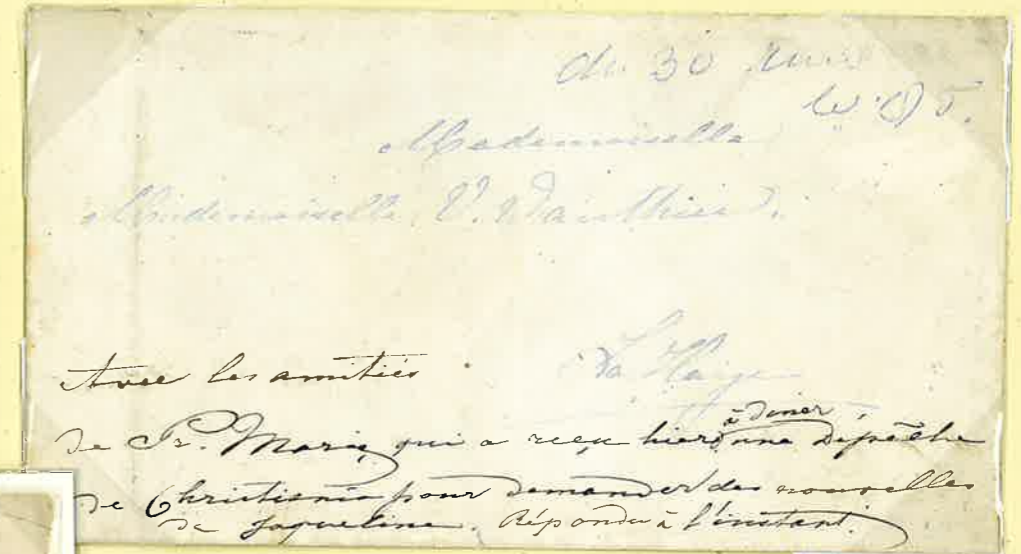 du 30
Mademoiselle
Mademoiselle V. Wauthier.
La Haye
Avec les amitiés
à diner,
de Pr. Marie, qui a reçu hier une dépêche
de Christiania pour demander des nouvelles
de Jaqueline. Répondu à l'instant.